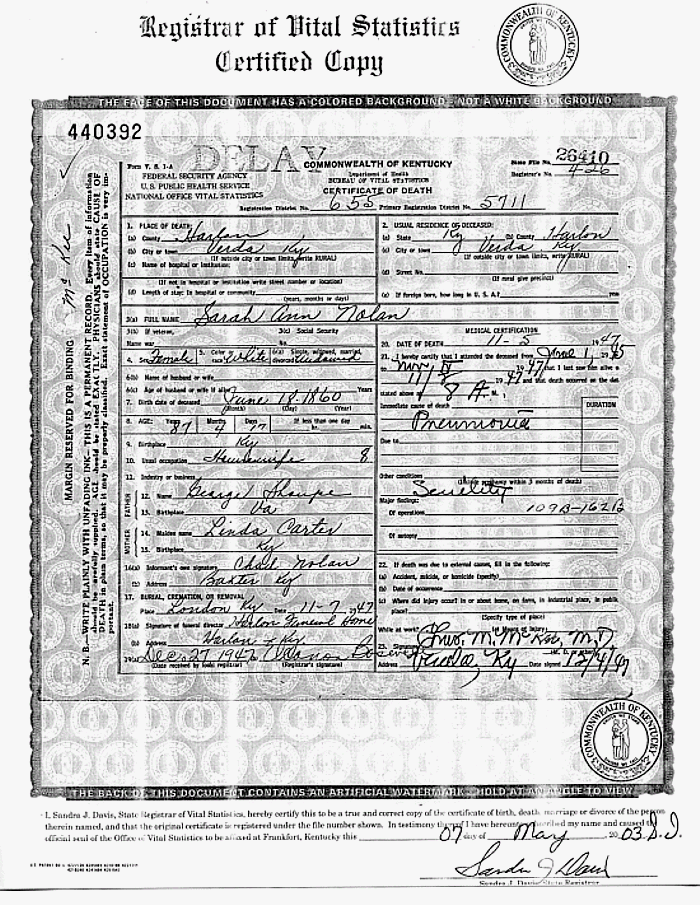 Registrar of Vital Statistics
Certified Copy
COMMONWEALTH OF KENTUCKY
THE FACE OF THIS DOCUMENT HAS A COLORED BACKGROUND - NOT A WHITE BACKGROUND
440392
DELAY
Form V. S. 1-A
FEDERAL SECURITY AGENCY
U. S. PUBLIC HEALTH SERVICE
NATIONAL OFFICE VITAL STATISTICS
COMMONWEALTH OF KENTUCKY
Department of Health
BUREAU OF VITAL STATISTICS
CERTIFICATE OF DEATH
State File No. 26410
Registrar's No. 426
Registration District No. 655 Primary Registration District No. 5711
MARGIN RESERVED FOR BINDING
N. B.—WRITE PLAINLY WITH UNFADING INK—THIS IS A PERMANENT RECORD. Every item of information
should be carefully supplied. AGE should be stated EXACTLY. PHYSICIANS should state CAUSE OF
DEATH in plain terms, so that it may be properly classified. Exact statement of OCCUPATION is very im-
portant.
1. PLACE OF DEATH:
(a) County Harlan
(b) City or town Verda Ky
(If outside city or town limits, write RURAL)
(c) Name of hospital or institution:
(If not in hospital or institution write street number or location)
(d) Length of stay: In hospital or community
(years, months or days)
2. USUAL RESIDENCE OF DECEASED:
(a) State Ky (b) County Harlan
(c) City or town Verda Ky
(If outside city or town limits, write RURAL)
(d) Street No.
(If rural give precinct)
(e) If foreign born, how long in U. S. A.? yrs
3(a) FULL NAME Sarah Ann Nolan
3(b) If veteran, 3(c) Social Security
Name war No.
4. Sex Female 5. Color or race White 6(a) Single, widowed, married, divorced Widowed
6(b) Name of husband or wife
6(c) Age of husband or wife if alive Years
7. Birth date of deceased June 18 1860
(Month) (Day) (Year)
8. AGE: Years 87 Months 4 Days 17 If less than one day hr. min.
9. Birthplace Ky
10. Usual occupation Housewife 8
11. Industry or business
FATHER
12. Name George Sharpe
13. Birthplace Va
MOTHER
14. Maiden name Linda Carter
15. Birthplace Ky
16(a) Informant's own signature Chad Nolan
(b) Address Baxter Ky
17. BURIAL, CREMATION, OR REMOVAL
Place London Ky Date 11-7 1947
18(a) Signature of funeral director Harlan Funeral Home
(b) Address Harlan Ky
19(a) Dec 27 1947
(Date received by local registrar) (Registrar's signature)
MEDICAL CERTIFICATION
20. DATE OF DEATH 11-5 1947
21. I hereby certify that I attended the deceased from June 1, 1945
to Nov 5 1947 that I last saw him alive
1947 and that death occurred on the date
stated above at 8 A. M.
Immediate cause of death
DURATION
Pneumonia
Due to
Other conditions Senility
(Include pregnancy within 3 months of death)
Major findings:
Of operations 109B-162B
Of autopsy
22. If death was due to external causes, fill in the following:
(a) Accident, suicide, or homicide (specify)
(b) Date of occurrence
(c) Where did injury occur? In or about home, on farm, in industrial place, in public
place?
(Specify type of place)
While at work?
23. Signature Thos. M. McKee, M. D.
Address Verda, Ky Date signed 12/4/47
COMMONWEALTH OF KENTUCKY
THE BACK OF THIS DOCUMENT CONTAINS AN ARTIFICIAL WATERMARK - HOLD AT AN ANGLE TO VIEW
I, Sandra J. Davis, State Registrar of Vital Statistics, hereby certify this to be a true and correct copy of the certificate of birth, death, marriage or divorce of the person
therein named, and that the original certificate is registered under the file number shown. In testimony thereof I have hereunto subscribed my name and caused the
official seal of the Office of Vital Statistics to be affixed at Frankfort, Kentucky this 07 day of May 2003
Sandra J. Davis
Sandra J. Davis State Registrar